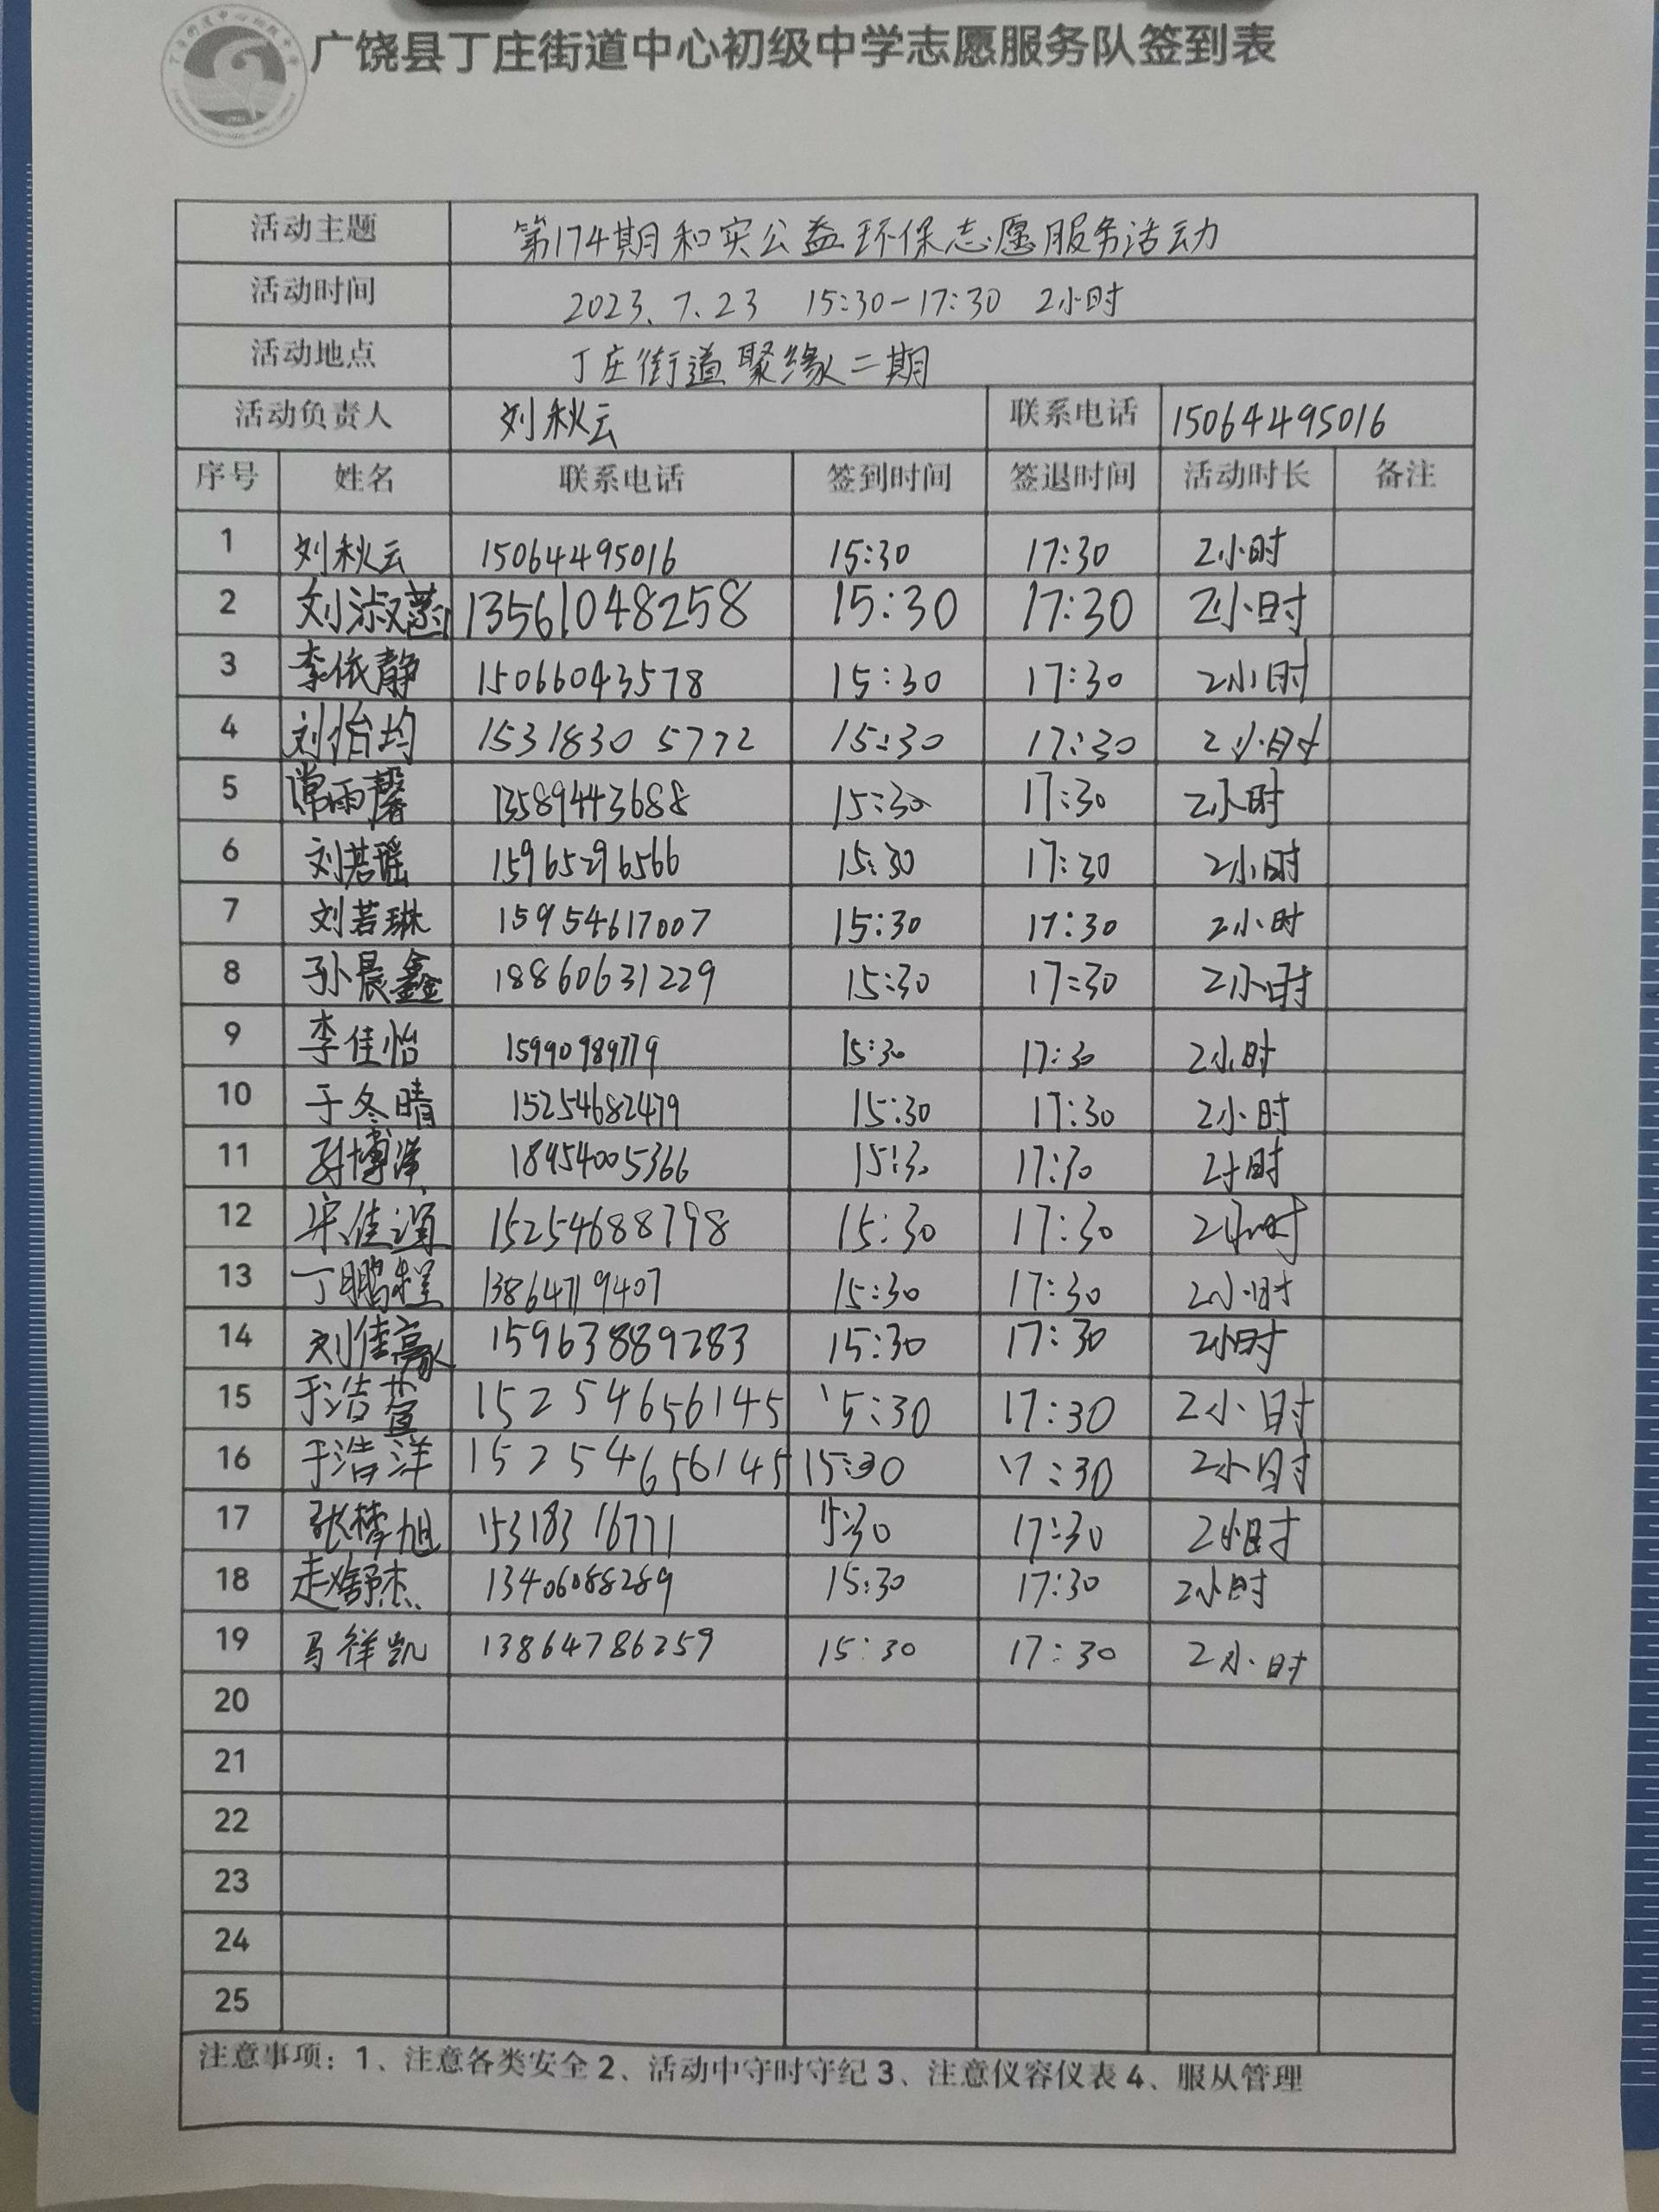 广饶县丁庄街道中心初级中学志愿服务队签到表
活动主题 第174期和实公益环保志愿服务活动
活动时间 2023.7.23 15:30-17:30 2小时
活动地点 丁庄街道聚缘二期
活动负责人 刘秋云 联系电话 15064495016
序号 姓名 联系电话 签到时间 签退时间 活动时长 备注
1 刘秋云 15064495016 15:30 17:30 2小时
2 13561048258 15:30 17:30 2小时
3 李依静 15066043578 15:30 17:30 2小时
4 刘怡均 15318305772 15:30 17:30 2小时
5 常雨馨 13589443688 15:30 17:30 2小时
6 刘若瑶 15965296566 15:30 17:30 2小时
7 刘若琳 15954617007 15:30 17:30 2小时
8 孙晨鑫 18860631229 15:30 17:30 2小时
9 李佳怡 15990989779 15:30 17:30 2小时
10 于冬晴 15254682479 15:30 17:30 2小时
11 孙博洋 18954005366 15:30 17:30 2小时
12 宋佳通 15254688798 15:30 17:30 2小时
13 丁鹏程 13864719407 15:30 17:30 2小时
14 刘佳豪 15963889283 15:30 17:30 2小时
15 于浩萱 15254656145 15:30 17:30 2小时
16 于浩洋 15254656145 15:30 17:30 2小时
17 张梦旭 15318316771 15:30 17:30 2小时
18 赵舒杰 13406088289 15:30 17:30 2小时
19 马祥凯 13864786259 15:30 17:30 2小时
20
21
22
23
24
25
注意事项：1、注意各类安全2、活动中守时守纪3、注意仪容仪表4、服从管理